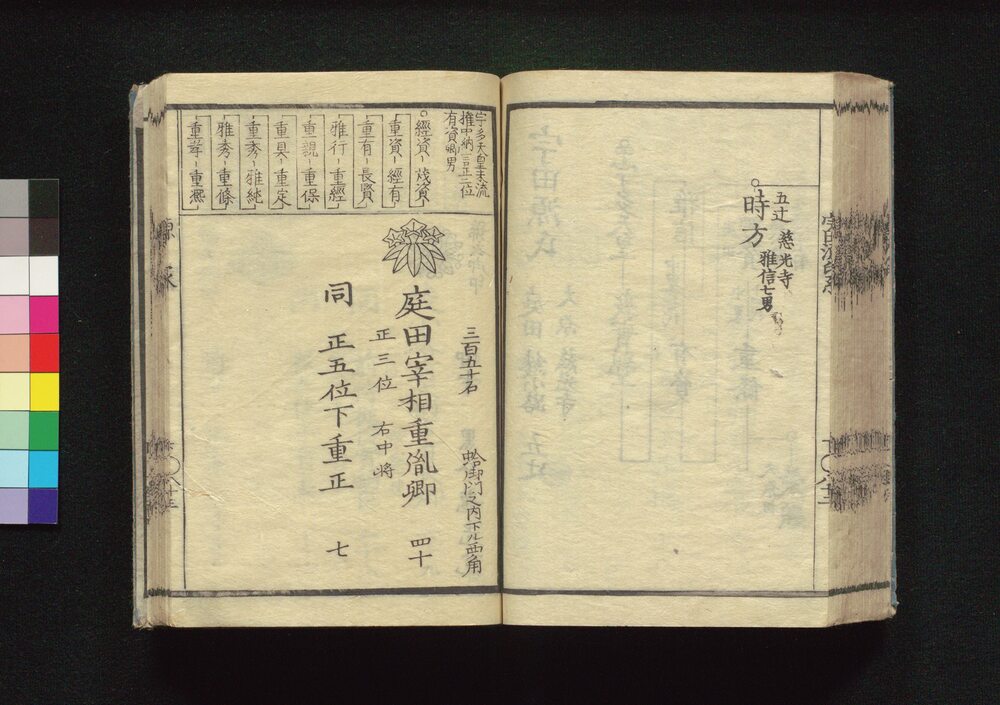 五辻
時方
慈光寺
雅信七男
宇多天皇末流
権中納言正三位
有資卿男
經資-茂資
重資-經有
重有-長賢
雅行-重經
重親-重保
重具-重定
重秀-雅純
雅秀-重條
重孝-重凞
三百五十石
蛤御門之内下ル西角
庭田宰相重胤卿 四十
正三位 右中将
同 正五位下重正 七